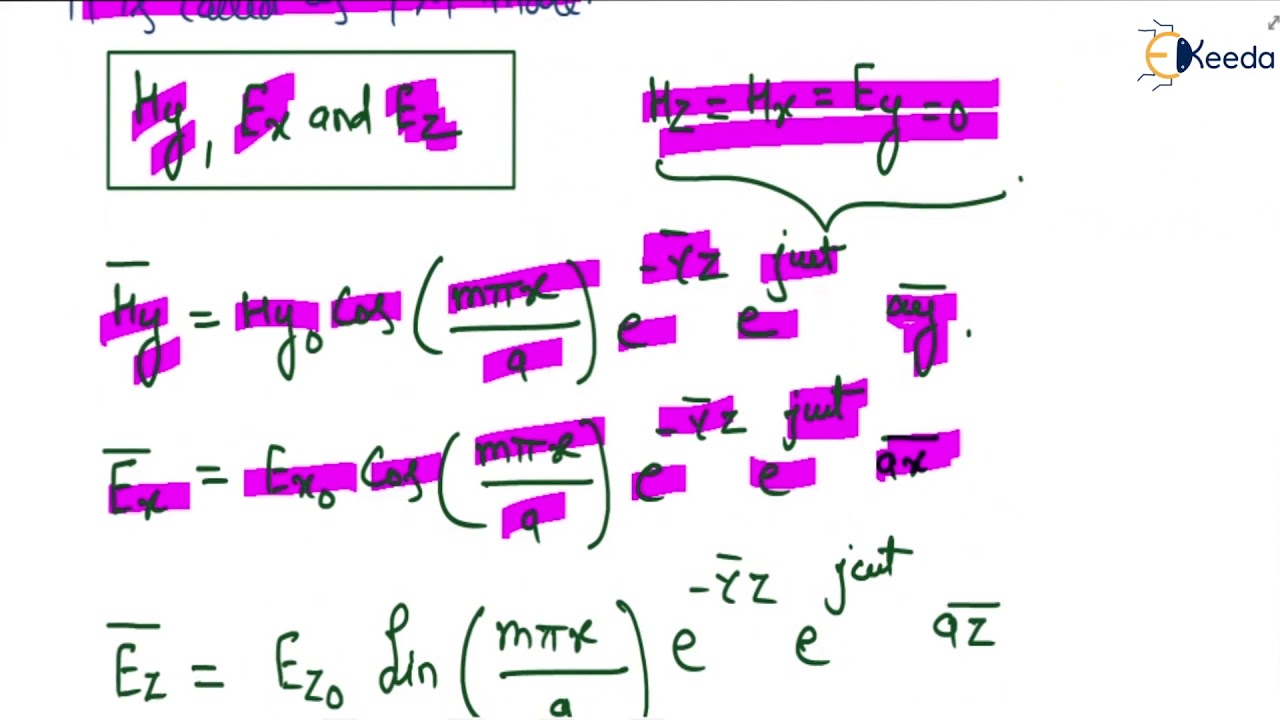 It is called as TM mode.
EKeeda
Hy, Ex and Ez
Hz = Hx = Ey = 0
H̅y = Hy₀ Cos (mπx / a) e^-γ̅z e^jωt a̅y.
E̅x = Ex₀ Cos (mπx / a) e^-γ̅z e^jωt a̅x
E̅z = Ez₀ Sin (mπx / a) e^-γ̅z e^jωt a̅z